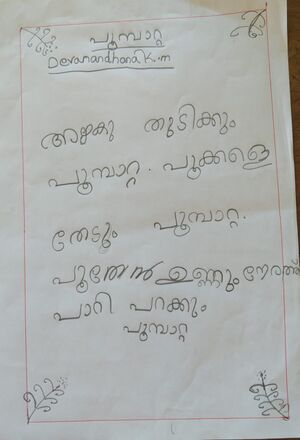 പൂമ്പാറ്റ
Devanandhana K.m
അഴകു തുടിക്കും
പൂമ്പാറ്റ. പൂക്കളെ
തേടും പൂമ്പാറ്റ.
പൂതേൻ ഉണ്ണും നേരത്ത്
പാറി പറക്കും
പൂമ്പാറ്റ